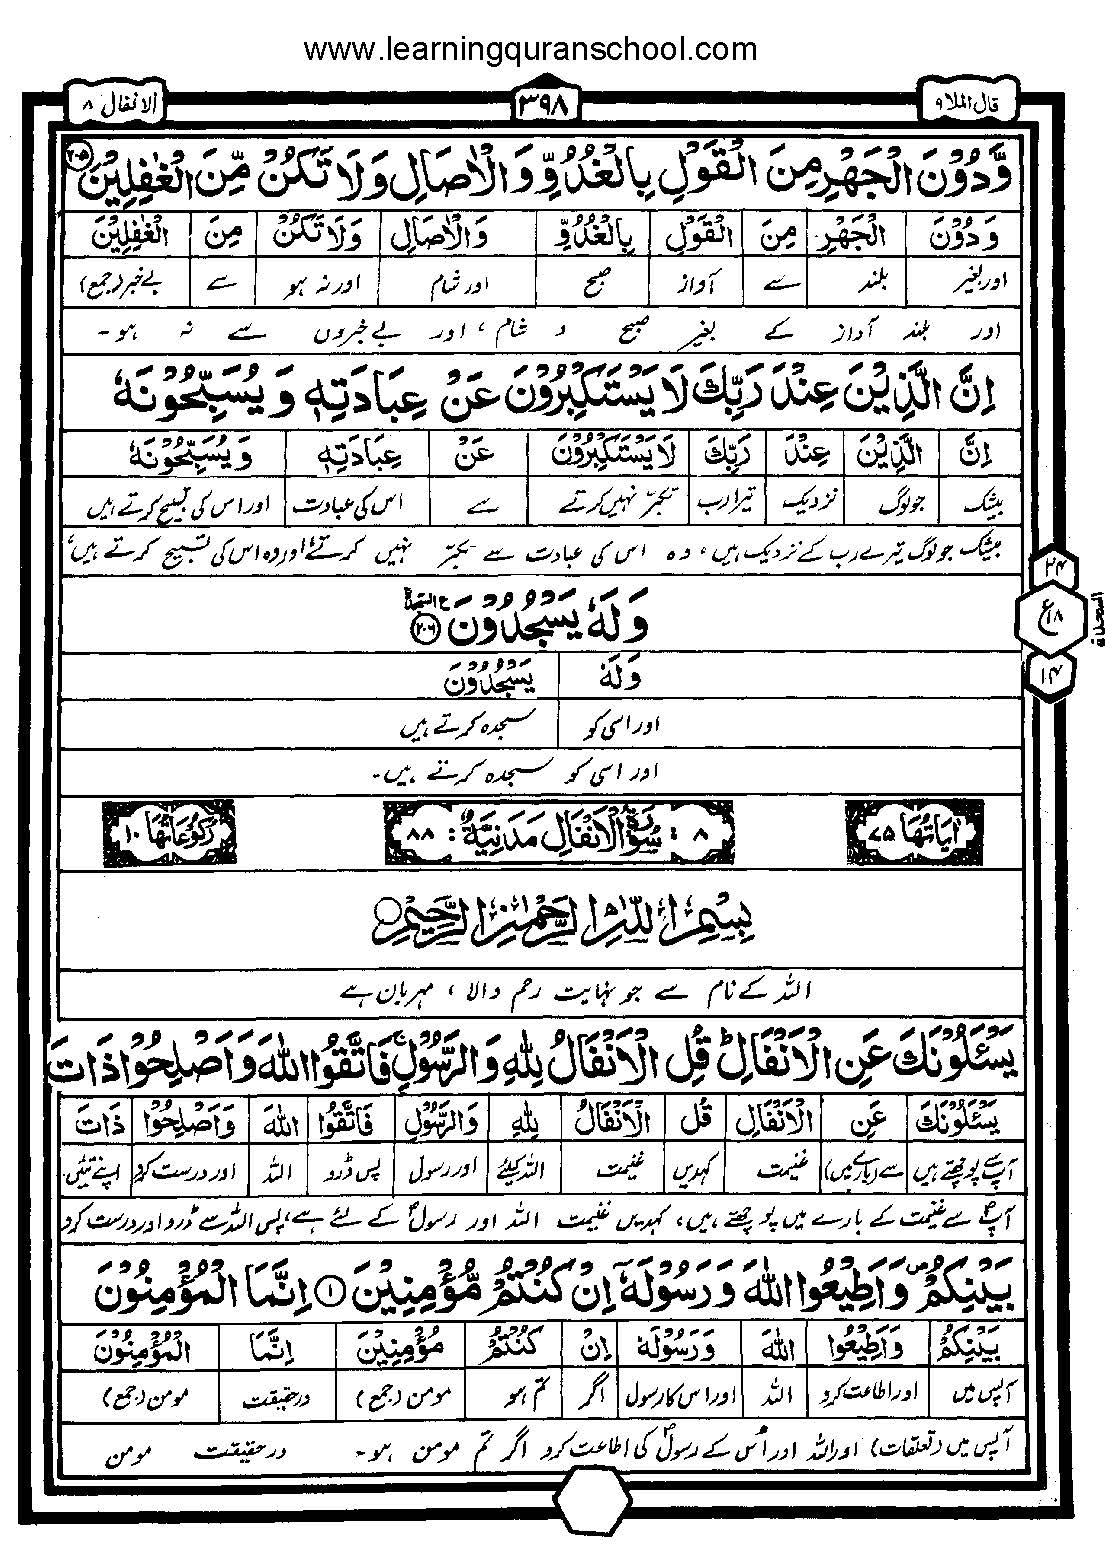 www.learningquranschool.com
قال الملا ۹
۳۹۸
الانفال ۸
وَّدُوْنَ الْجَهْرِ مِنَ الْقَوْلِ بِالْغُدُوِّ وَالْاٰصَالِ وَلَا تَكُنْ مِّنَ الْغٰفِلِيْنَ ۲۰۵
وَدُوْنَ الْجَهْرِ مِنَ الْقَوْلِ بِالْغُدُوِّ وَالْاٰصَالِ وَلَا تَكُنْ مِنَ الْغٰفِلِيْنَ
اور بغیر بلند سے آواز صبح اور شام اور نہ ہو سے بے خبر (جمع)
اور بلند آواز کے بغیر صبح و شام، اور بے خبروں سے نہ ہو۔
اِنَّ الَّذِيْنَ عِنْدَ رَبِّكَ لَا يَسْتَكْبِرُوْنَ عَنْ عِبَادَتِهٖ وَيُسَبِّحُوْنَهٗ
اِنَّ الَّذِيْنَ عِنْدَ رَبِّكَ لَا يَسْتَكْبِرُوْنَ عَنْ عِبَادَتِهٖ وَيُسَبِّحُوْنَهٗ
بیشک جو لوگ نزدیک تیرا رب تکبر نہیں کرتے سے اس کی عبادت اور اس کی تسبیح کرتے ہیں
بیشک جو لوگ تیرے رب کے نزدیک ہیں، وہ اس کی عبادت سے تکبر نہیں کرتے، اور وہ اس کی تسبیح کرتے ہیں،
وَلَهٗ يَسْجُدُوْنَ ۲۰۶
۲۴
ع ۱۸
۱۴
السجدة
وَلَهٗ يَسْجُدُوْنَ
اور اسی کو سجدہ کرتے ہیں
اور اسی کو سجدہ کرتے ہیں۔
اٰيَاتُهَا ۷۵
۸ : سُوْرَةُ الْاَنْفَالِ مَدَنِيَّةٌ : ۸۸
رُكُوْعَاتُهَا ۱۰
بِسْمِ اللّٰهِ الرَّحْمٰنِ الرَّحِيْمِ
اللہ کے نام سے جو نہایت رحم والا، مہربان ہے
يَسْـَٔلُوْنَكَ عَنِ الْاَنْفَالِ ؕ قُلِ الْاَنْفَالُ لِلّٰهِ وَالرَّسُوْلِ ۚ فَاتَّقُوا اللّٰهَ وَاَصْلِحُوْا ذَاتَ
يَسْـَٔلُوْنَكَ عَنِ الْاَنْفَالِ قُلِ الْاَنْفَالُ لِلّٰهِ وَالرَّسُوْلِ فَاتَّقُوا اللّٰهَ وَاَصْلِحُوْا ذَاتَ
آپ سے پوچھتے ہیں سے (بارے میں) غنیمت کہدیں غنیمت اللہ کیلئے اور رسول پس ڈرو اللہ اور درست کرو اپنے تئیں
آپ سے غنیمت کے بارے میں پوچھتے ہیں، کہدیں غنیمت اللہ اور رسول کے لئے ہے، پس اللہ سے ڈرو اور درست کرو
بَيْنِكُمْ ۪ وَاَطِيْعُوا اللّٰهَ وَرَسُوْلَهٗۤ اِنْ كُنْتُمْ مُّؤْمِنِيْنَ ۱ اِنَّمَا الْمُؤْمِنُوْنَ
بَيْنِكُمْ وَاَطِيْعُوا اللّٰهَ وَرَسُوْلَهٗ اِنْ كُنْتُمْ مُؤْمِنِيْنَ اِنَّمَا الْمُؤْمِنُوْنَ
آپس میں اور اطاعت کرو اللہ اور اس کا رسول اگر تم ہو مومن (جمع) درحقیقت مومن (جمع)
آپس میں (تعلقات) اور اللہ اور اُس کے رسول کی اطاعت کرو اگر تم مومن ہو۔ درحقیقت مومن